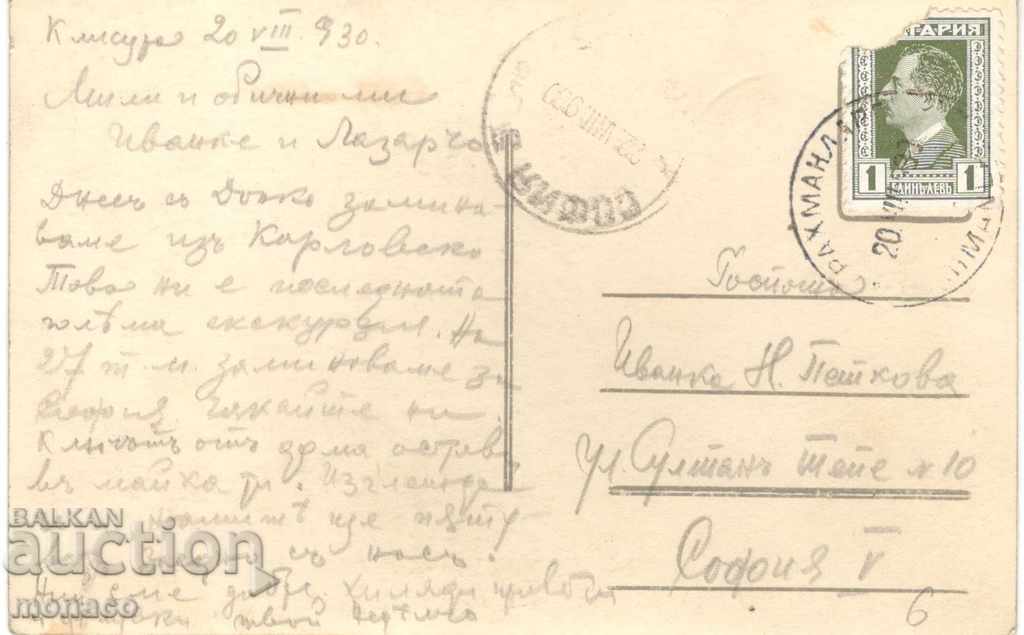 Клисура 20 VIII 930.
Мили и обични ми
Иванке и Лазарчо
Днесъ съ Дочко замина-
ваме изъ Карловско
Това ни е последната
голѣма екскурзия. На
27 т.м. заминаваме за
София чакайте ни.
Ключътъ отъ дома остав
въ майка ти. Изглежда
ще
съ насъ.
Ние сме добре. Хиляди
твой
СОФИЯ
БЪЛГАРИЯ
1 1
РАХМАНЛАРЕ
20. VIII
Госпожа
Иванка Н. Петкова
ул. Султанъ Тепе № 10
София V
6
BALKAN
auction
monaco